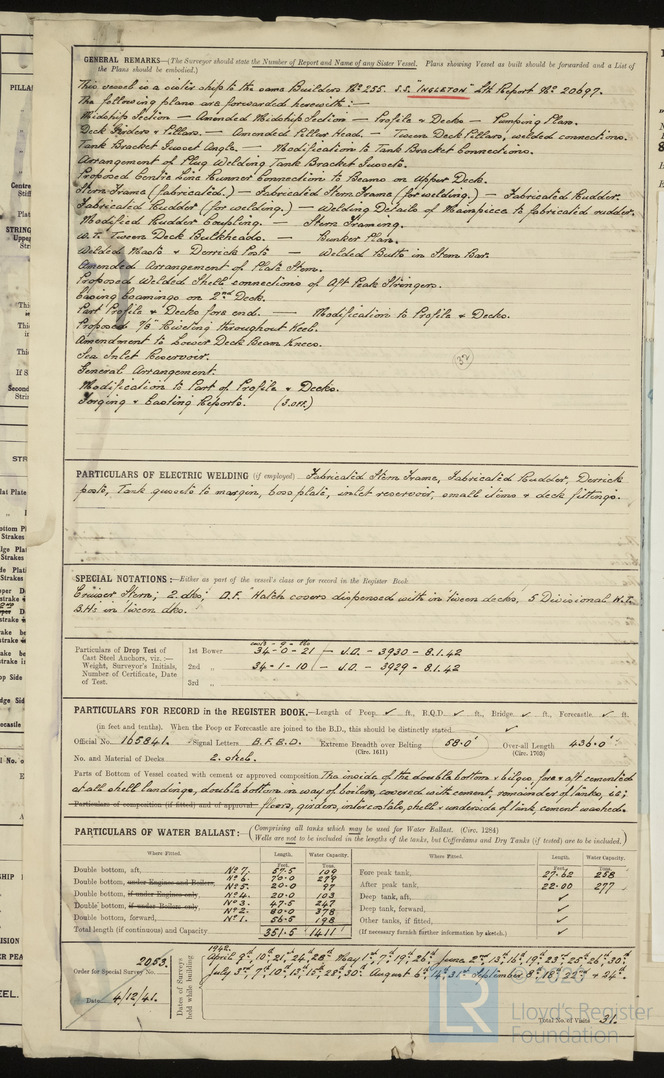 GENERAL REMARKS—(The Surveyor should state the Number of Report and Name of any Sister Vessel. Plans showing Vessel as built should be forwarded and a List of
the Plans should be embodied.)
This vessel is a sister ship to the same Builders No 255. S.S. "INGLETON" Lth Report No. 20697.
The following plans are forwarded herewith:—
Midship Section — Amended Midship Section — Profile & Decks — Pumping Plan.
Deck Girders & Pillars. — Amended Pillar Head. — Tween Deck Pillars, welded connections.
Tank Bracket Gusset Angle. — Modification to Tank Bracket Connections.
Arrangement of Plug Welding Tank Bracket Gussets.
Proposed Centre Line Runner Connection to Beams on Upper Deck.
Stern Frame (fabricated.) — Fabricated Stern Frame (for welding.) — Fabricated Rudder.
Fabricated Rudder (for welding.) — Welding Details of Mainpiece to fabricated rudder.
Modified Rudder Coupling. — Stern Framing.
W.T. Tween Deck Bulkheads. — Bunker Plan.
Welded Masts & Derrick Posts — Welded Butts in Stem Bar.
Amended Arrangement of Plate Stem.
Proposed Welded Shell connections of Aft Peak Stringers.
Casing Coamings on 2nd Deck.
Part Profile & Decks fore end. — Modification to Profile & Decks.
Proposed 7/8" Riveting throughout Keel.
Amendment to Lower Deck Beam Knees.
Sea Inlet Reservoir.
General Arrangement.
Modification to Part of Profile & Decks.
Forging & Casting Reports. (3.off.)
PARTICULARS OF ELECTRIC WELDING (if employed) Fabricated Stern Frame, Fabricated Rudder, Derrick
posts, Tank gussets to margin, boss plate, inlet reservoir, small items & deck fittings.
SPECIAL NOTATIONS:—Either as part of the vessel's class or for record in the Register Book
Cruiser Stern; 2. dks; D.F. Hatch covers dispensed with in 'tween decks, 5 Divisional W.T.
B.Hs in 'tween dks.
Particulars of Drop Test of
Cast Steel Anchors, viz.:—
Weight, Surveyor's Initials,
Number of Certificate, Date
of Test.
1st Bower 34-0-21 — J.O. – 3930 – 8.1.42
2nd „ 34-1-10 — J.O. – 3929 – 8.1.42
3rd „
PARTICULARS FOR RECORD in the REGISTER BOOK.—Length of Poop ✓ ft., R.Q.D. ✓ ft., Bridge ✓ ft., Forecastle ✓ ft.
(in feet and tenths). When the Poop or Forecastle are joined to the B.D., this should be distinctly stated ✓
Official No. 165841. Signal Letters B.F.B.D. Extreme Breadth over Belting 58.0' Over-all Length 436.0'
(Circ. 1611) (Circ. 1703)
No. and Material of Decks 2. steel.
Parts of Bottom of Vessel coated with cement or approved composition The inside of the double bottom & bilges, fore & aft cemented
at all shell landings, double bottom in way of boilers, covered with cement, remainder of tanks, ie;
Particulars of composition (if fitted) and of approval floors, girders, intercostals, shell & underside of tank, cement washed.
PARTICULARS OF WATER BALLAST:—(Comprising all tanks which may be used for Water Ballast. (Circ. 1284)
Wells are not to be included in the lengths of the tanks, but Cofferdams and Dry Tanks (if tested) are to be included.)
Where Fitted. Length. Water Capacity. Where Fitted. Length. Water Capacity.
Feet. Tons. Feet. Tons.
Double bottom, aft, No. 7. 57.5 109
Double bottom, under Engines and Boilers, No. 6. 70.0 279
Double bottom, if under Engines only, No. 5. 20.0 97
No. 4. 20.0 103
Double bottom, if under Boilers only, No. 3. 47.5 247
No. 2. 80.0 378
Double bottom, forward, No. 1. 56.5 198
Total length (if continuous) and Capacity 351.5 1411
Fore peak tank, 27.62 258
After peak tank, 22.00 277
Deep tank, aft, ✓
Deep tank, forward, ✓
Other tanks, if fitted, ✓
(If necessary furnish further information by sketch.) ✓
Order for Special Survey No. 2053.
Date 4/12/41.
Dates of Surveys
held while building
1942.
Total No. of Visits 31.
© 2020
LR
Lloyd's Register
Foundation